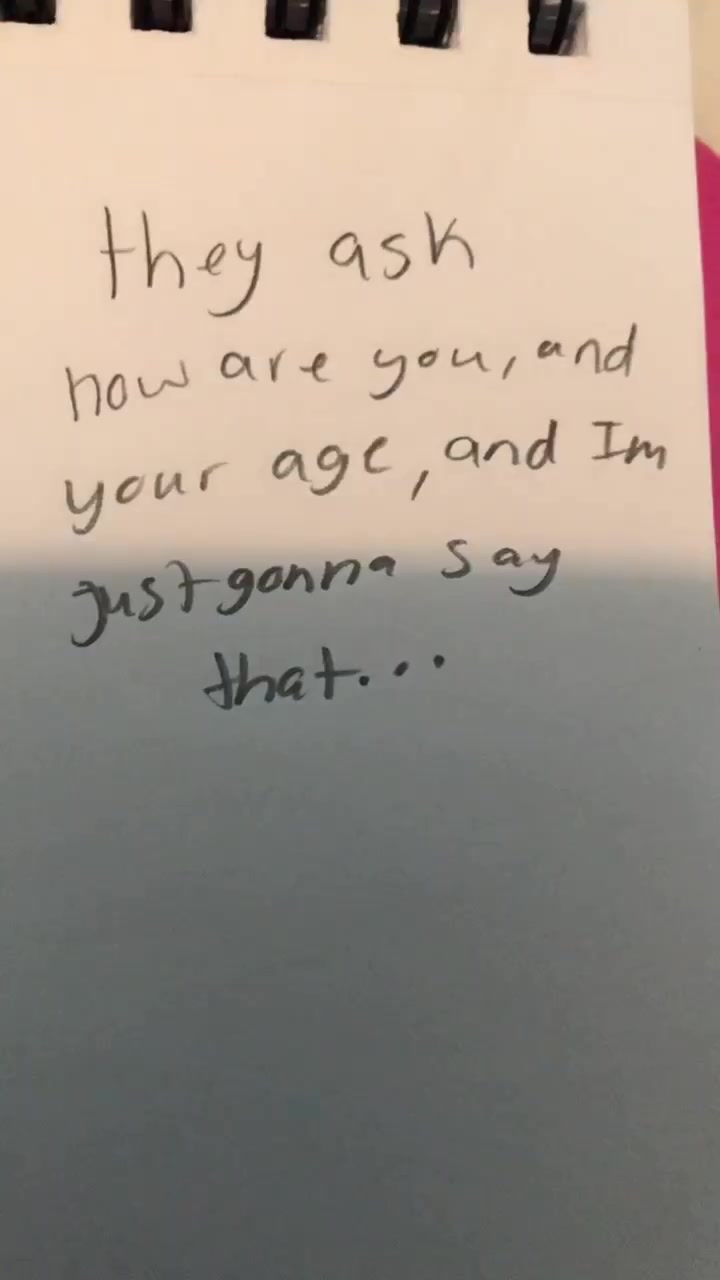 they ask
how are you, and
your age, and Im
just gonna say
that...